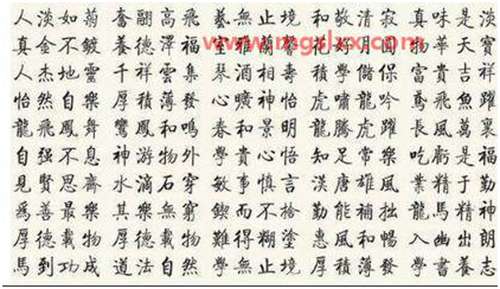 人淡如菊 奮翮高飛 藝無止境 和敬清寂 真味是淡
真金不鍍 養德澤福 雅 花好月圓 物華天寶
人杰地靈 千祥雲集 琴酒相壽 積學儲 富貴吉祥
怡然自樂 厚積薄發 心曠神怡 虎嘯龍吟 鳶飛魚躍
龍飛鳳舞 鸞鳳和鳴 春和景明 龍騰虎躍 長風萬裏
自强不息 神游物外 和貴心悟 知足常樂 吃虧是福
見賢思齊 水滴石穿 敏事慎言 漢唐雄風 業精于勤
爲善最樂 其樂無窮 鍥而不捨 勤能補拙 龍馬精神
厚德載物 厚德載物 難得糊塗 惠風和暢 入幽出朗
馬到功成 道法自然 學無止境 厚積薄發 學書養志